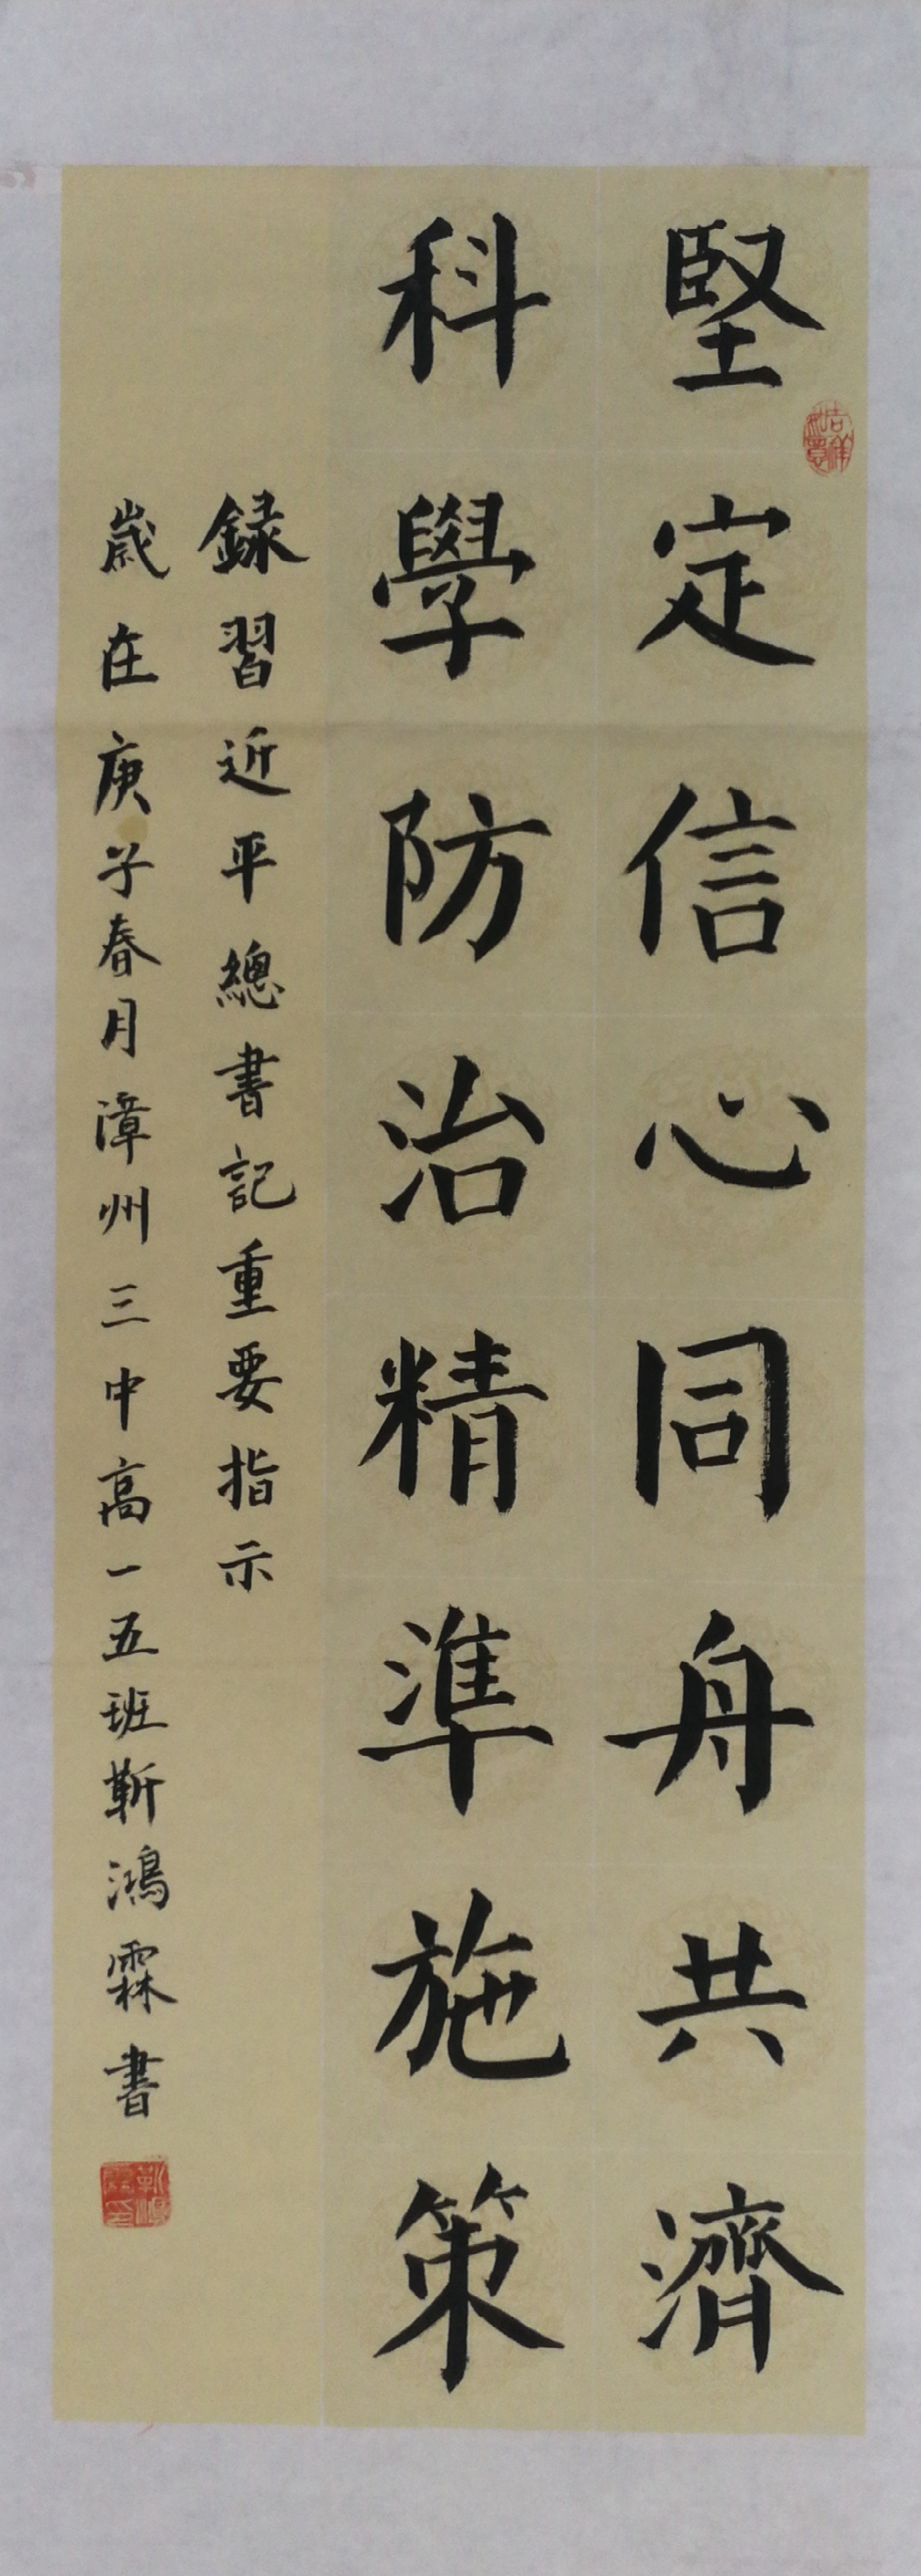 堅定信心同舟共濟
科學防治精準施策
録習近平總書記重要指示
歲在庚子春月漳州三中高一五班靳鴻霖書